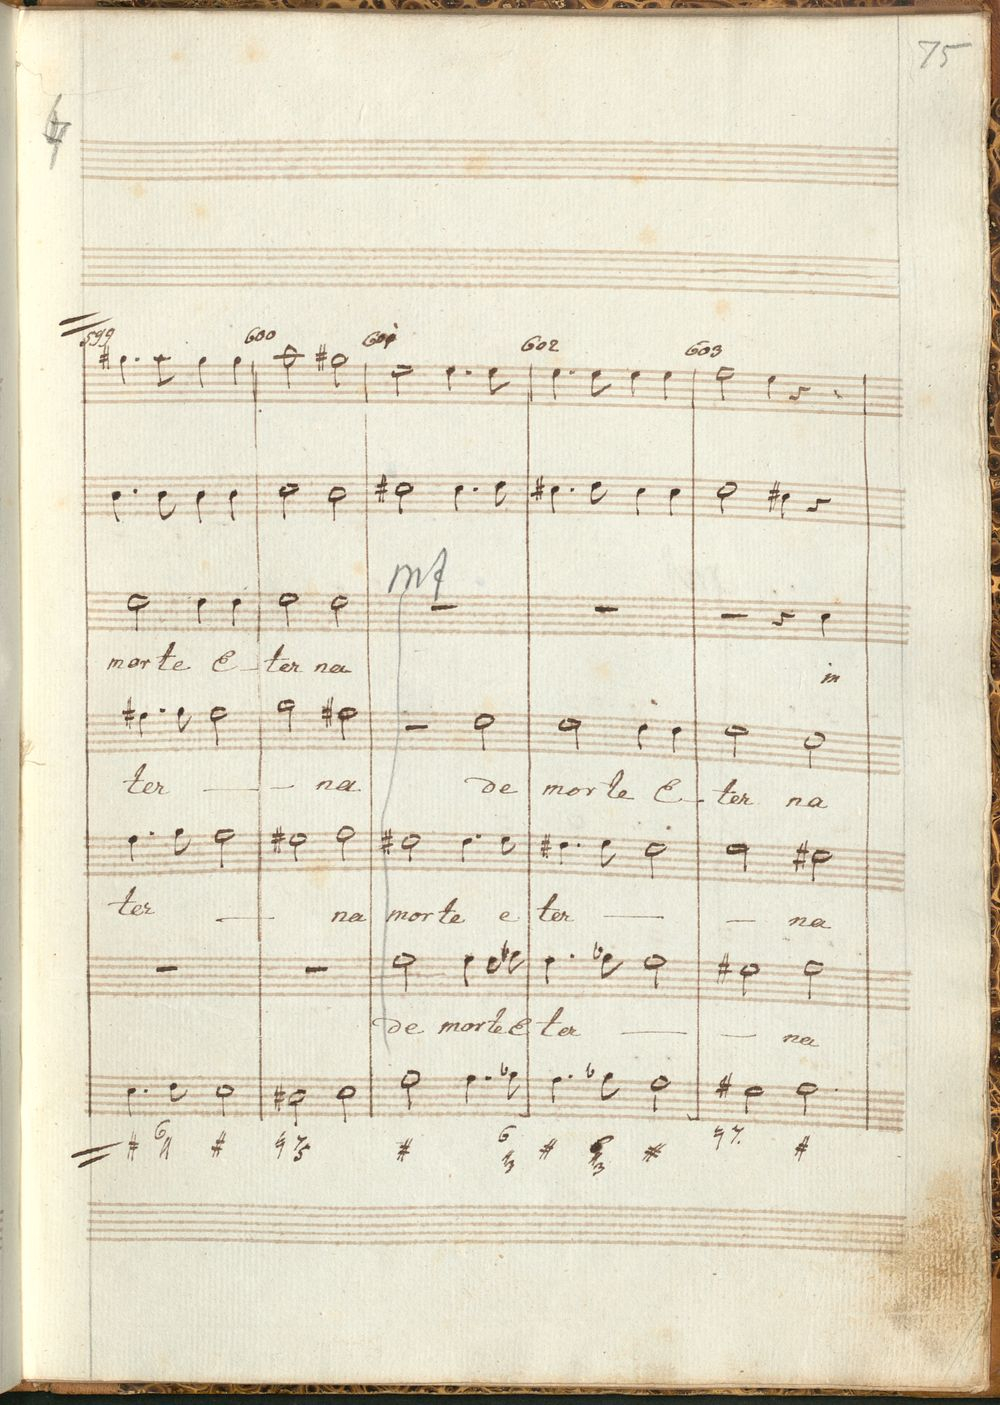 75
599 600 601 602 603
mf
morte E - ter na in
ter — - na de morte E - ter na
ter — na morte e ter — - na
de morte E ter — - na
# 6 # ♮7 5 # 6 # # # ♮7. #